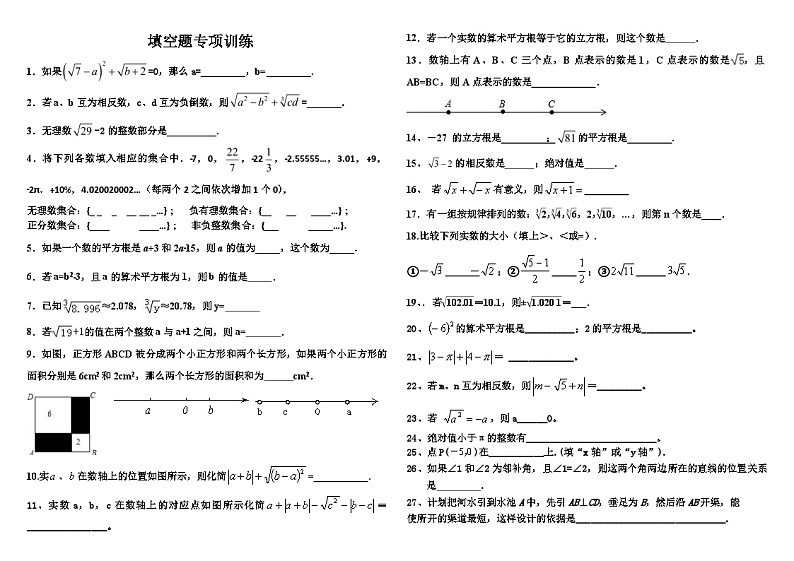 填空题专项训练
1．如果(√7-a)²+√b+2=0，那么 a=_________，b=_________．
2．若 a、b 互为相反数，c、d 互为负倒数，则√a²-b²+∛cd=_______．
3．无理数√29-2的整数部分是__________．
4．将下列各数填入相应的集合中．-7，0，22/7，-22 1/3，-2.55555…，3.01，+9，
-2π．+10%，4.020020002…（每两个 2 之间依次增加 1 个 0），
无理数集合：{_ _ _ __ __ _…}； 负有理数集合：{__ __ ____…}；
正分数集合：{____ ____…}； 非负整数集合：{___ _____…}．
5．如果一个数的平方根是 a+3 和 2a-15，则 a 的值为_____，这个数为_____．
6．若 a=b²-3，且 a 的算术平方根为 1，则 b 的值是_____．
7．已知∛8.996≈2.078，∛y≈20.78，则 y=_______
8．若√19+1的值在两个整数 a 与 a+1 之间，则 a=_______．
9．如图，正方形 ABCD 被分成两个小正方形和两个长方形，如果两个小正方形的
面积分别是 6cm² 和 2cm²，那么两个长方形的面积和为______cm²．
D C
6
2
A B
a 0 b
b c 0 a
10.实a 、b 在数轴上的位置如图所示，则化简|a+b|+√(b-a)²=___________．
11、实数 a，b，c 在数轴上的对应点如图所示化简a+|a+b|-√c²-|b-c|=
________________。
12．若一个实数的算术平方根等于它的立方根，则这个数是______．
13．数轴上有 A、B、C 三个点，B 点表示的数是 1，C 点表示的数是√5，且
AB=BC，则 A 点表示的数是_____________．
A B C
14、－27 的立方根是_________；√81的平方根是_________．
15、√3-2的相反数是______；绝对值是______．
16、 若√x+√-x有意义，则√x+1=_________
17．有一组按规律排列的数：∛2,∛4,∛6，2,∛10，…，则第 n 个数是____．
18.比较下列实数的大小（填上＞、＜或=）．
①－√3_______－√2；②√5-1/2_____1/2；③2√11______3√5．
19、．若√102.01=10.1，则±√1.0201=___．
20、(-6)²的算术平方根是__________；2 的平方根是__________。
21、|3-π|+|4-π|=_____________。
22、若 m、n 互为相反数，则|m-√5+n|=_________。
23、若 √a²=-a，则 a______0。
24、绝对值小于 π 的整数有__________________________。
25、点 P(-5,0)在___________上.(填“x 轴”或“y 轴”).
26、如果∠1 和∠2 为邻补角，且∠1=∠2，则这两个角两边所在的直线的位置关系
是_________.
27、计划把河水引到水池 A 中，先引 AB⊥CD，垂足为 B，然后沿 AB 开渠，能
使所开的渠道最短，这样设计的依据是______________________________.